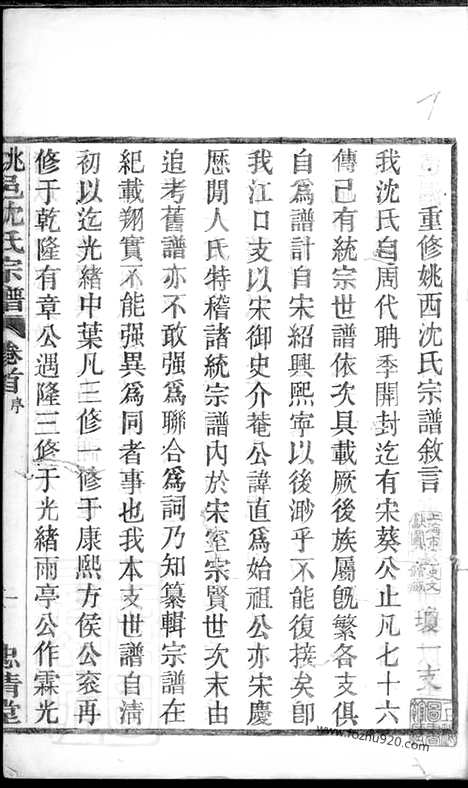 重修姚西沈氏宗譜敘言
瓊一支
我沈氏自周代聃季開封迄有宋葵公止凡七十六
傳已有統宗世譜依次具載厥後族屬既繁各支俱
自爲譜計自宋紹興熙寧以後渺乎不能復摭矣卽
我江口支以宋御史介菴公諱直爲始祖公亦宋慶
歷閒人氏特稽諸統宗譜內於宋室宗賢世次末由
追考舊譜亦不敢强爲聯合爲詞乃知纂輯宗譜在
紀載翔實不能强異爲同者事也我本支世譜自淸
初以迄光緒中葉凡三修一修于康熙方侯公衮再
修于乾隆有章公遇隆三修于光緒雨亭公作霖光
姚邑沈氏宗譜 卷首 序 一 忠淸堂
www.fozhu920.com